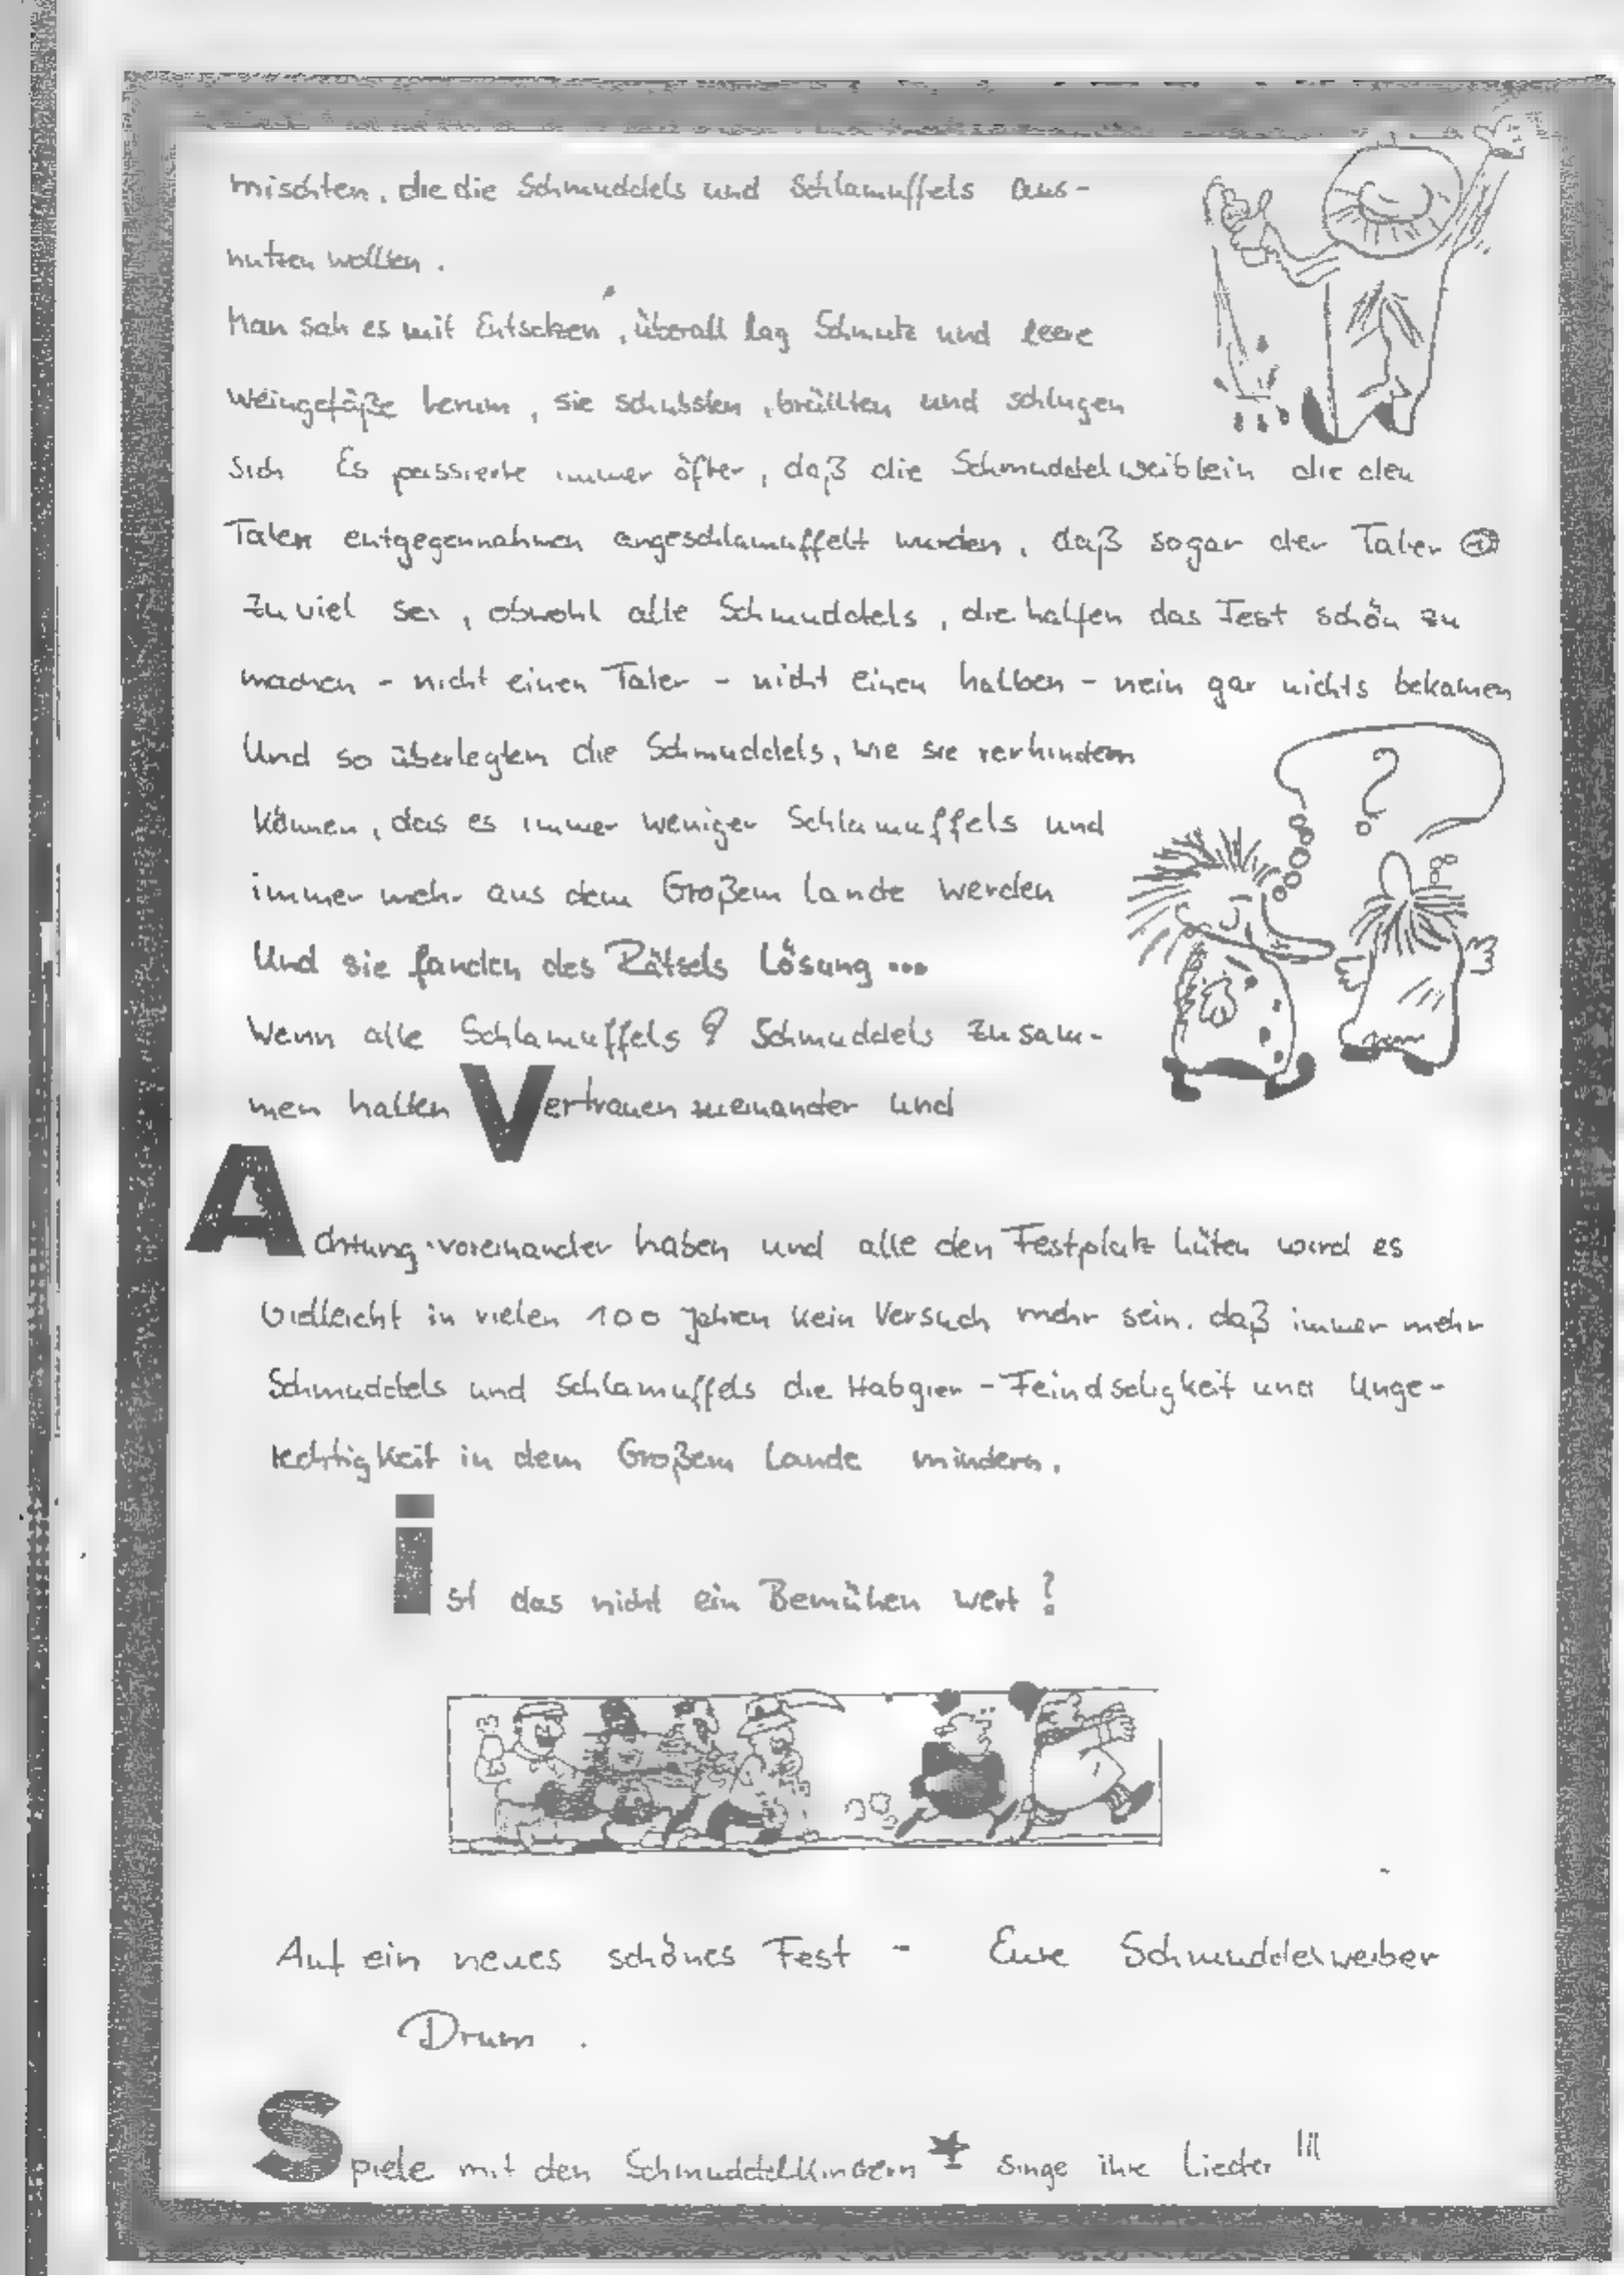 mischten, die die Schmuddels und Schlamuffels aus-
nutzen wollten.
Man sah es mit Entsetzen, überall lag Schmutz und leere
Weingefäße herum, sie schubsten, brüllten und schlugen
sich Es passierte immer öfter, daß die Schmuddelweiblein die den
Talern entgegennahmen angeschlamuffelt wurden, daß sogar der Taler
zu viel sei, obwohl alle Schmuddels, die halfen das Fest schön zu
machen - nicht einen Taler - nicht einen halben - nein gar nichts bekamen
Und so überlegten die Schmuddels, wie sie verhindern
können, das es immer weniger Schlamuffels und
immer mehr aus dem Großem Lande werden
Und sie fanden des Rätsels Lösung ...
Wenn alle Schlamuffels & Schmuddels zusam-
men halten Vertrauen zueinander und
Achtung voreinander haben und alle den Festplatz hüten wird es
Vielleicht in vielen 100 Jahren kein Versuch mehr sein, daß immer mehr
Schmuddels und Schlamuffels die Habgier - Feindseligkeit und Unge-
rechtigkeit in dem Großem Lande mindern.
ist das nicht ein Bemühen wert?
?
Auf ein neues schönes Fest - Eure Schmuddelweiber
Drum.
Spiele mit den Schmuddelkindern * singe ihre Lieder !!!